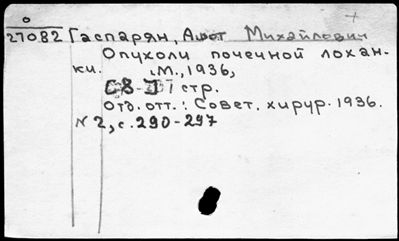 o
27082 Гаспарян, Ашот Михайлович
Опухоли почечной лохан-
ки. М., 1936,
стр.
Отд. отт.: Совет. хирур. 1936.
N 2, с. 290-297